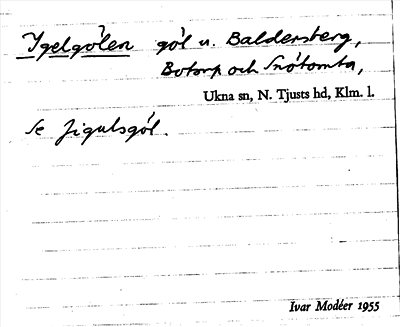 Igelgölen göl u. Baldersberg,
Botorp och Snötomta,
Ukna sn, N. Tjusts hd, Klm. l.
Se Jigulsgöl.
Ivar Modéer 1955